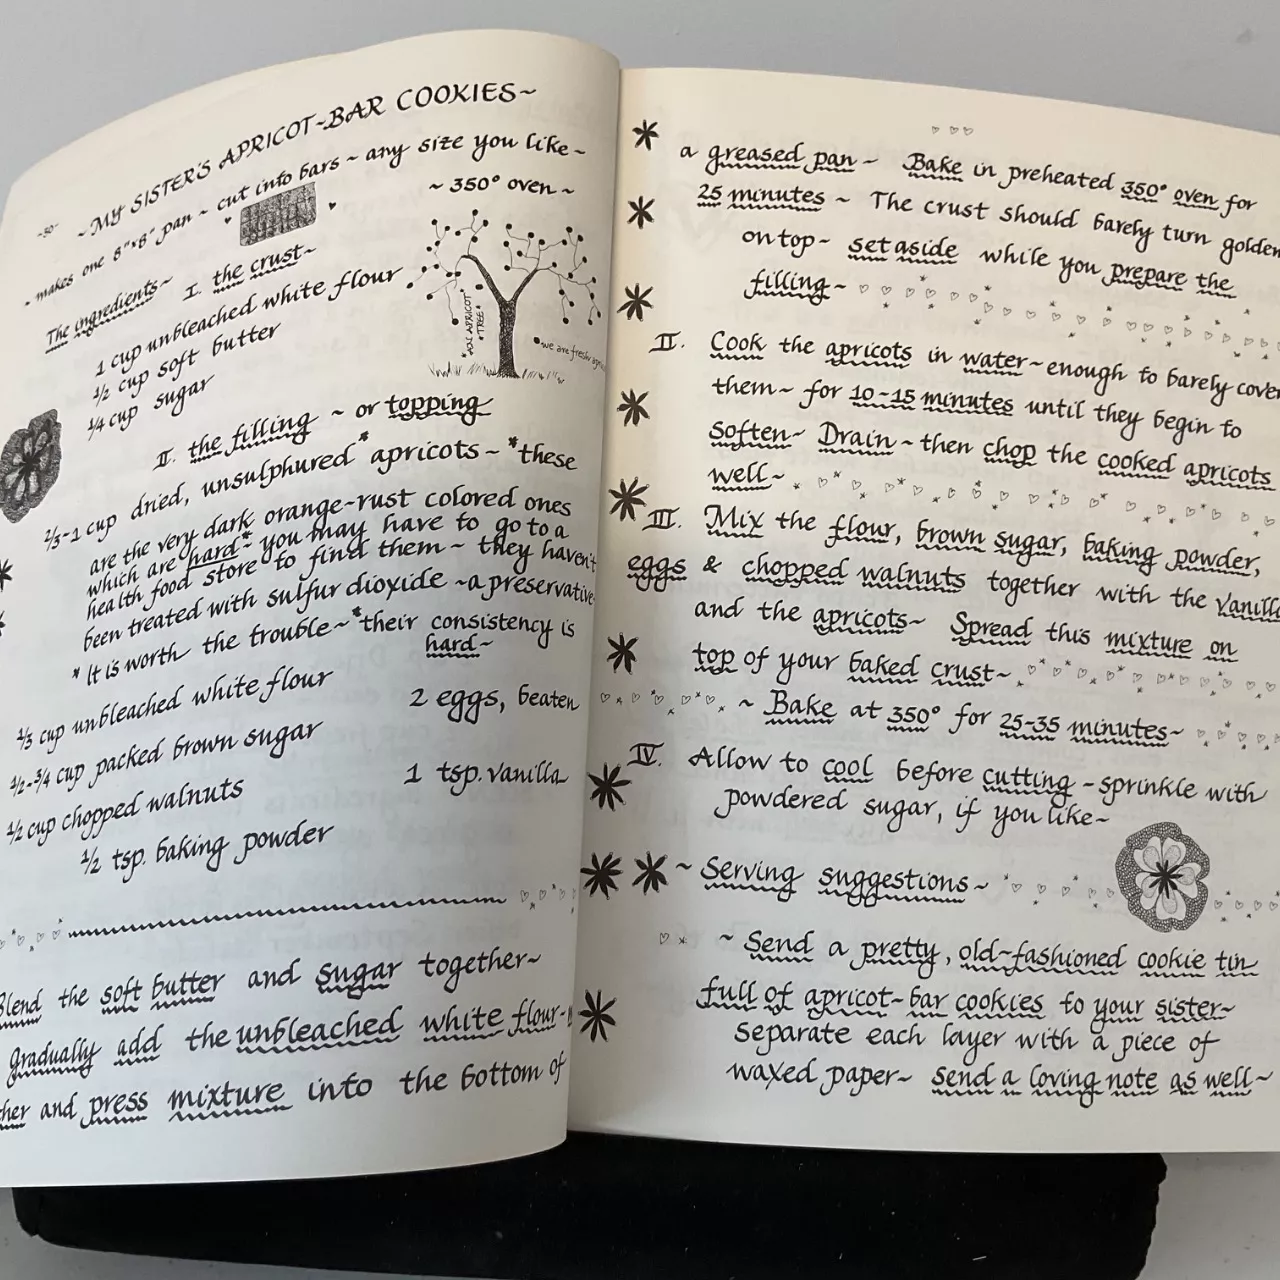 ~50~
~MY SISTER'S APRICOT~BAR COOKIES~
~ makes one 8"x8" pan ~ cut into bars ~ any size you like~
~ 350° oven ~
The ingredients~
I. the crust~
1 cup unbleached white flour
1/2 cup soft butter
1/4 cup sugar
APRICOT
TREE
we are fresh
II. the filling ~ or topping
2/3-1 cup dried, unsulphured* apricots ~ *these
are the very dark orange-rust colored ones
which are hard~ you may have to go to a
health food store to find them ~ they haven't
been treated with sulfur dioxide ~a preservative
* It is worth the trouble~ *their consistency is
hard~
1/3 cup unbleached white flour
2 eggs, beaten
1/2-3/4 cup packed brown sugar
1 tsp. vanilla
1/2 cup chopped walnuts
1/2 tsp. baking powder
Blend the soft butter and sugar together~
gradually add the unbleached white flour~
and press mixture into the bottom of
a greased pan ~ Bake in preheated 350° oven for
25 minutes ~ The crust should barely turn golden
on top~ set aside while you prepare the
filling~
II. Cook the apricots in water~enough to barely cover
them~ for 10-15 minutes until they begin to
soften~ Drain ~ then chop the cooked apricots
well~
III. Mix the flour, brown sugar, baking powder,
eggs & chopped walnuts together with the vanilla
and the apricots~ Spread this mixture on
top of your baked crust~
~ Bake at 350° for 25-35 minutes~
IV. Allow to cool before cutting ~ sprinkle with
powdered sugar, if you like~
~ Serving suggestions~
~ Send a pretty, old-fashioned cookie tin
full of apricot-bar cookies to your sister~
separate each layer with a piece of
waxed paper~ send a loving note as well~